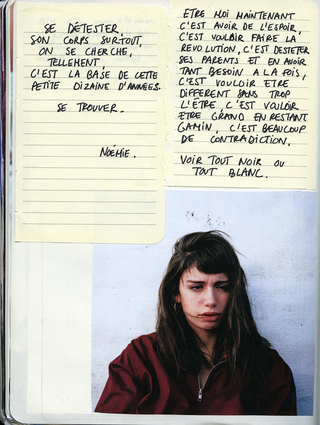 SE DÉTESTER,
SON CORPS SURTOUT,
ON SE CHERCHE,
TELLEMENT,
C'EST LA BASE DE CETTE
PETITE DIZAINE D'ANNÉES.
SE TROUVER.
NOÉMIE.
ETRE MOI MAINTENANT
C'EST AVOIR DE L'ESPOIR,
C'EST VOULOIR FAIRE LA
REVOLUTION, C'EST DESTETER
SES PARENTS ET EN AVOIR
TANT BESOIN A LA FOIS,
C'EST VOULOIR ETRE
DIFFERENT SANS TROP
L'ETRE, C'EST VOULOIR
ETRE GRAND EN RESTANT
GAMIN, C'EST BEAUCOUP
DE CONTRADICTION,
VOIR TOUT NOIR OU
TOUT BLANC.